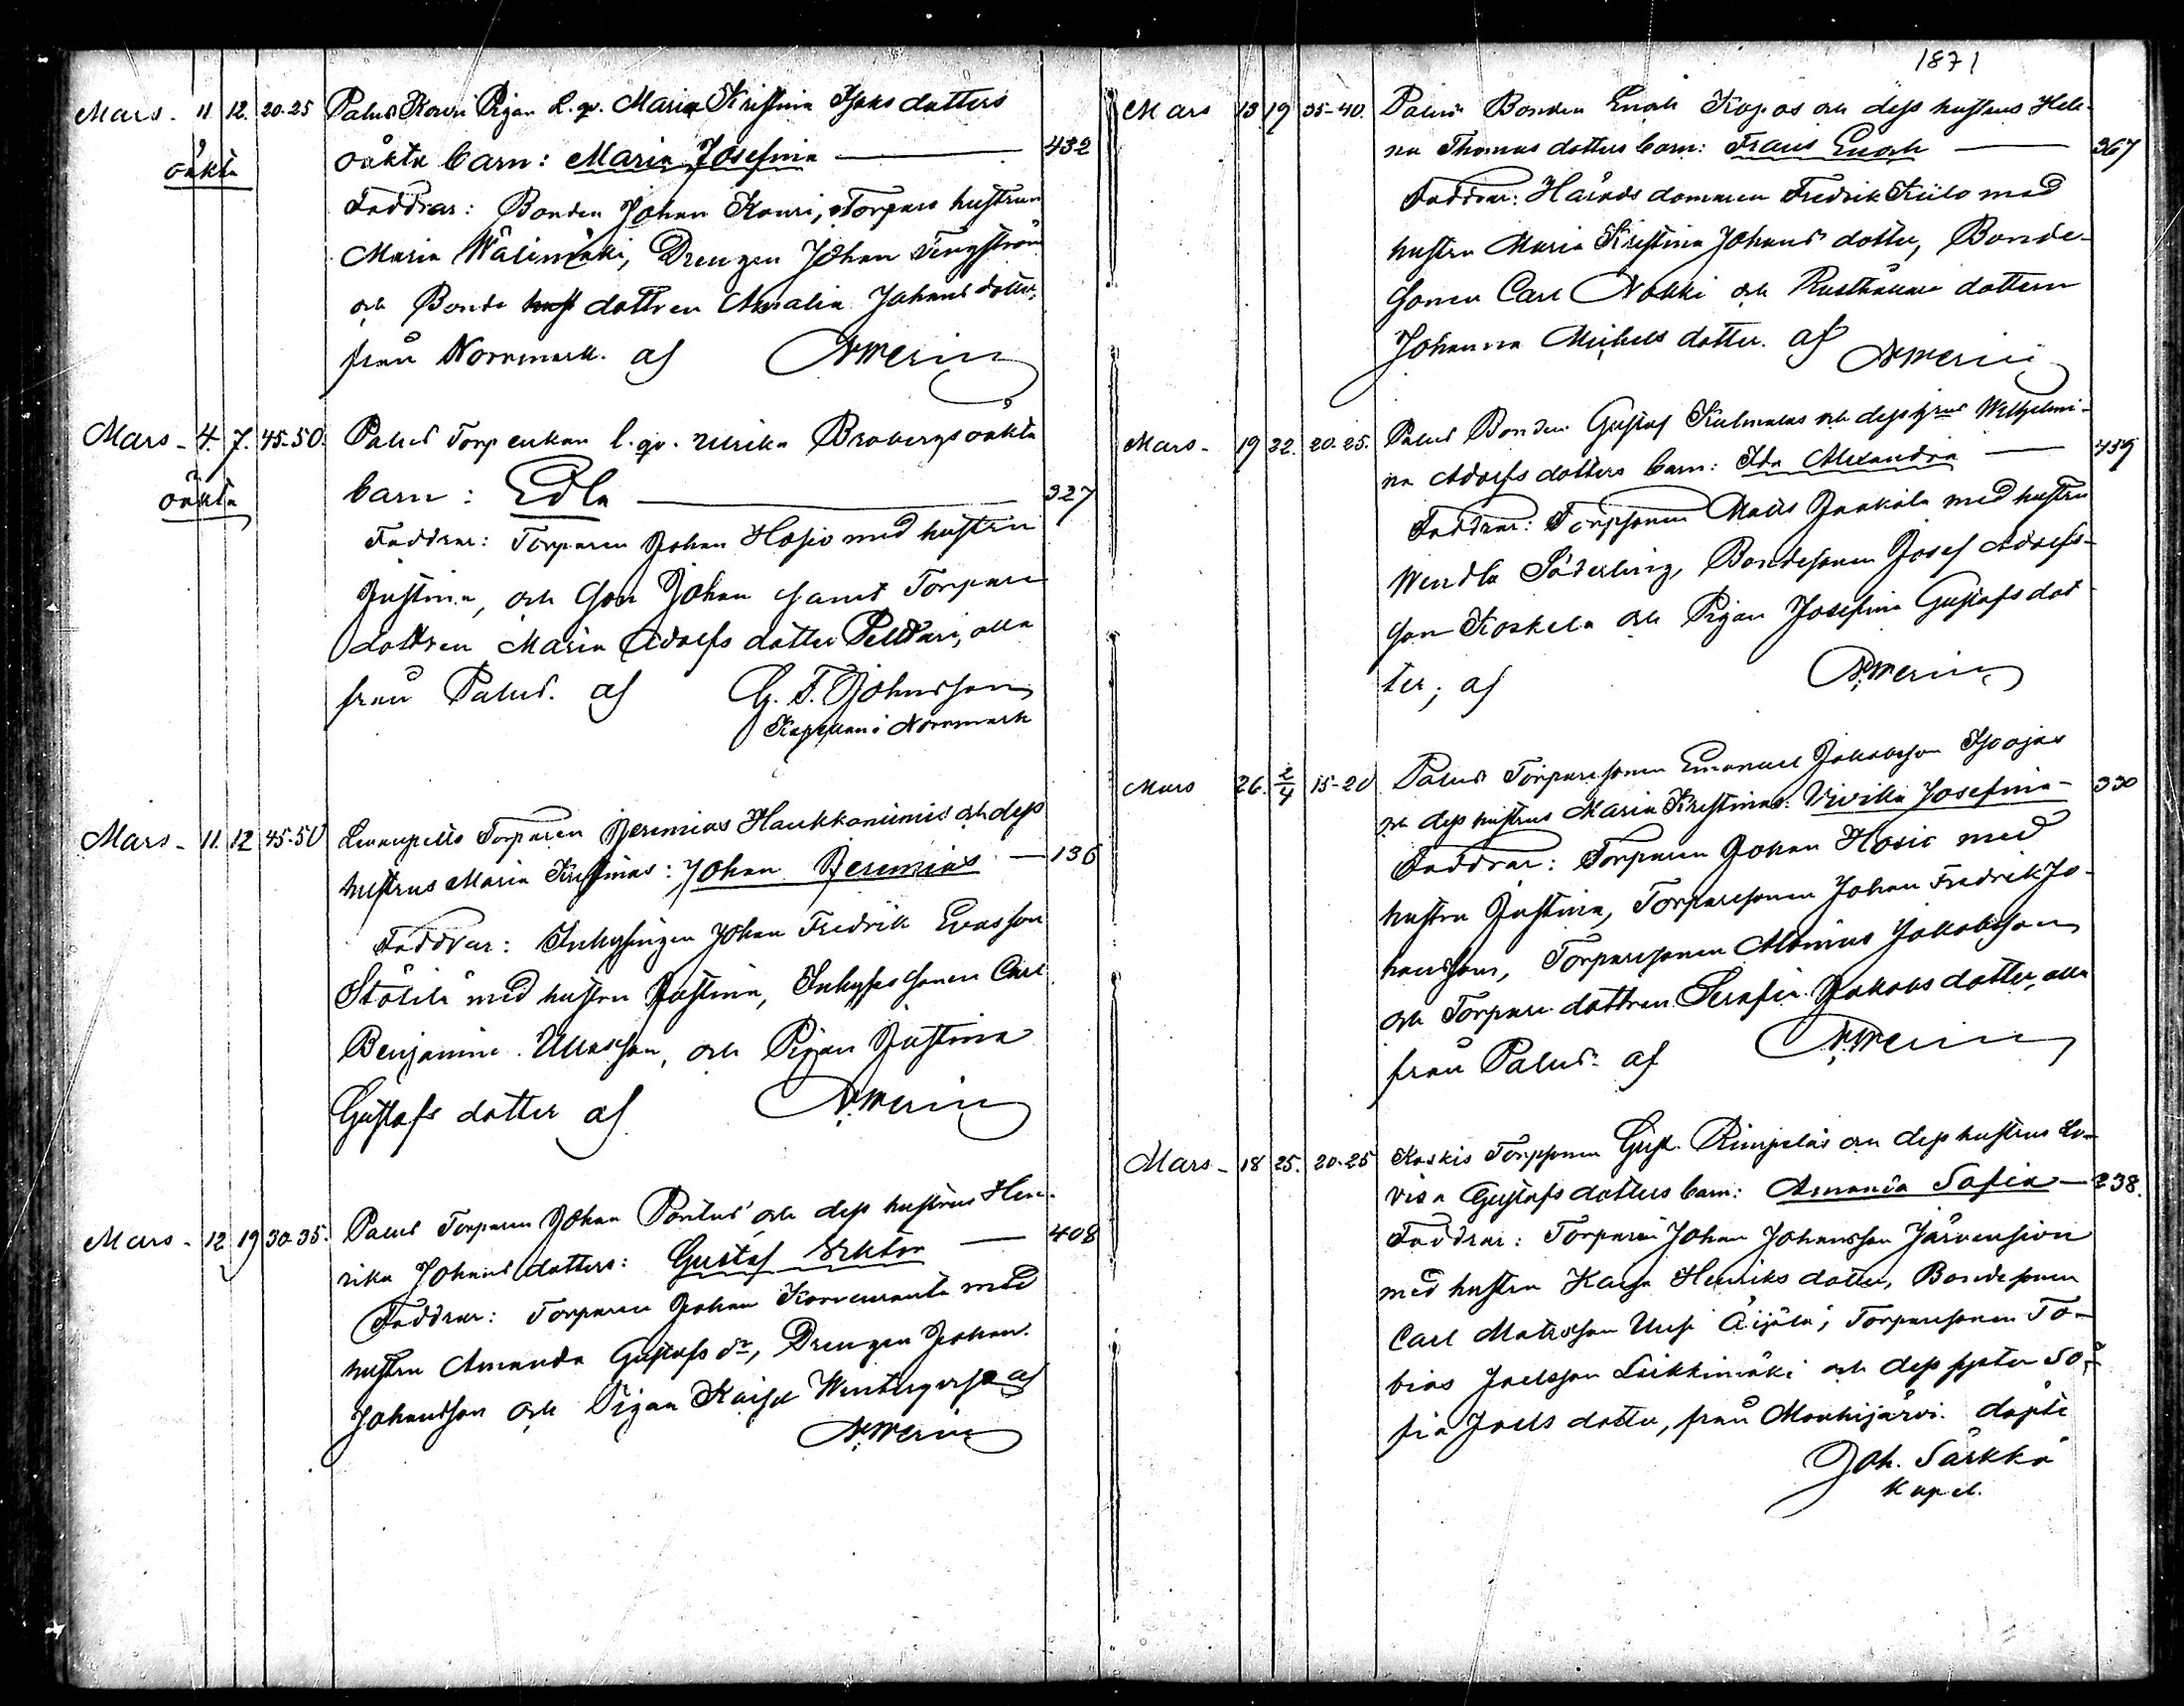 Mars - 11 12. 20-25 Palus Kouri Pigan l. qv. Maria Kristina Isaks dotters
oäkta oäkta barn: Maria Josefina — 432
Faddrar: Bonden Johan Kouri, Torpare hustrun
Maria Wälimäki, Drengen Johan Tengström
och Bonde dottren Amalia Johans dotter,
från Norrmark. af
Mars - 4. 7. 45-50. Palus Torp enkan l. qv. Ulrika Brobergs oäkta
oäkta barn: Edla — 327
Faddrar: Torparen Johan Hosio med hustru
Justina, och Son Johan samt Torpare
dottren Maria Adolfs dotter Peldari, alla
från Palus. af G. F. Johnsson
Kapellan i Norrmark
Mars - 11. 12 45-50 Torparen Jeremias Haukkaniemis och dess
hustrus Maria Kristinas: Johan Jeremias — 136
Faddrar: Inhysingen Johan Fredrik Evasson
Stölile med hustru Justina, Inhyses sonen Carl
Benjamin Ullasson, och Pigan Justina
Gustafs dotter af
Mars - 12 19 30-35. Palus Torparen Johan Pontus' och dess hustrus Hen-
rika Johans dotters: Gustaf Viktor — 408
Faddrar: Torparen Johan Korvenranta med
hustru Amanda Gustafs dr, Drengen Johan
Johansson och Pigan Kaisa af
1871
Mars 13 19 35-40. Palus Bonden Enok Kopos och dess hustrus Hele-
na Thomas dotters barn: Frans Enok — 367
Faddrar: Härads domaren Fredrik Kiilo med
hustru Maria Kristina Johans dotter, Bonde-
sonen Carl Nokki och Rusthållare dottern
Johanna Mickels dotter. af
Mars - 19 22. 20-25. Palus Bonden Gustaf Kulmalas och dess hrus Wilhelmi-
na Adolfs dotters barn: Ida Alexandra — 459
Faddrar: Torpsonen Matts Jaakola med hustru
Wendla Söderling, Bondesonen Josef Adolfs-
son Koskela och Pigan Josefina Gustafs dot-
ter; af
Mars 26. 2/4 15-20 Palus Torparesonen Emanuel Jakobsson Isoojas
och dess hustrus Maria Kristinas: Vivika Josefina - 330
Faddrar: Torparen Johan Hosio med
hustru Justina, Torparesonen Johan Fredrik Jo-
hansson, Torparesonen Manius Jakobsson
och Torpare dottren Serafia Jakobs dotter, alla
från Palus. af
Mars - 18 25. 20-25 Koskis Torpsonen Gust. Rimpeläs och dess hustrus Lo-
visa Gustafs dotters barn: Amanda Sofia — 238.
Faddrar: Torparen Johan Johansson Järvensivu
med hustru Kaisa Henriks dotter, Bondesonen
Carl Matsson Uusi Äijälä, Torparesonen To-
bias Joelsson Leikkimäki och dess syster So-
fia Joels dotter, från Mouhijärvi. döpte
Joh. Särkkä
Kapel.